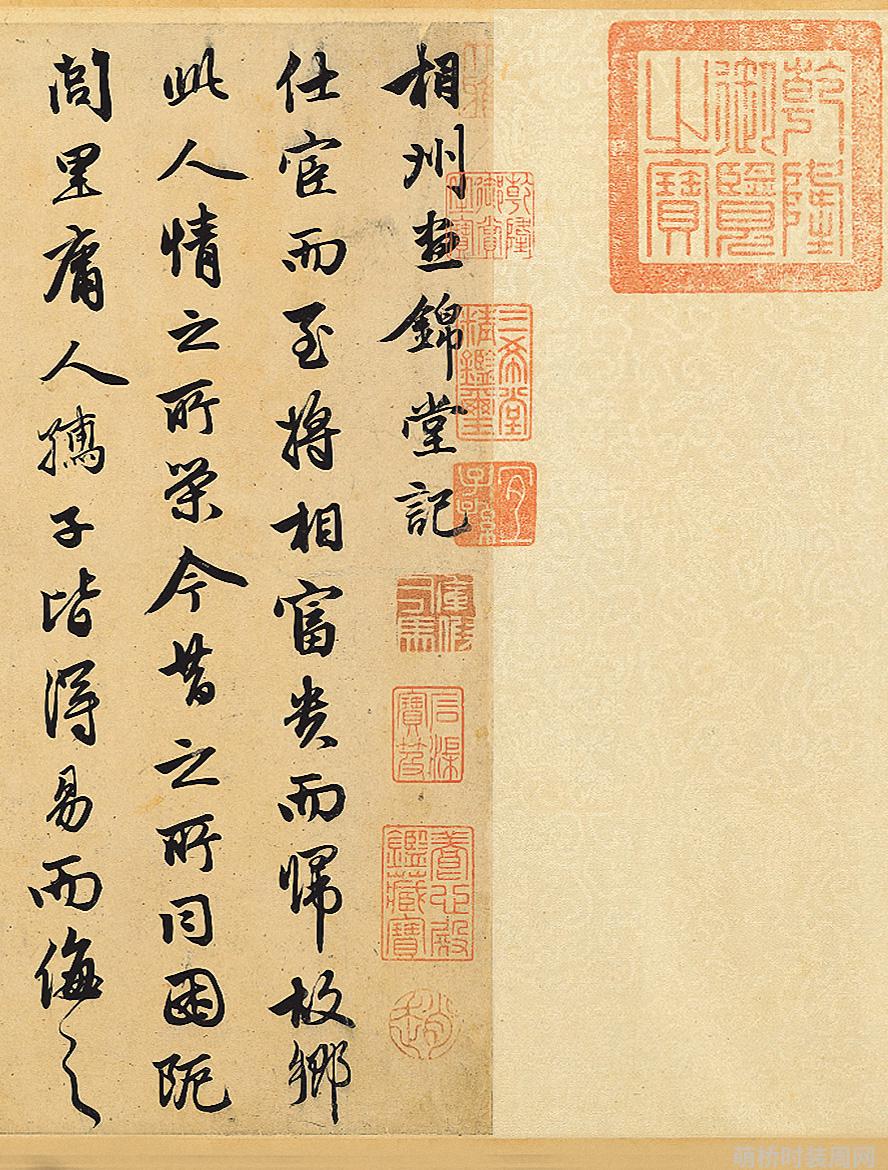 乾隆御覽之寶
乾隆御賞之寶
三希堂精鑑璽
宜子孫
相州晝錦堂記
軍假司馬
石渠寶笈
養心殿鑑藏寶
趙
仕宦而至將相富貴而歸故鄉
此人情之所榮今昔之所同困阨
閭里庸人孺子皆得易而侮之
萌桥时装周网